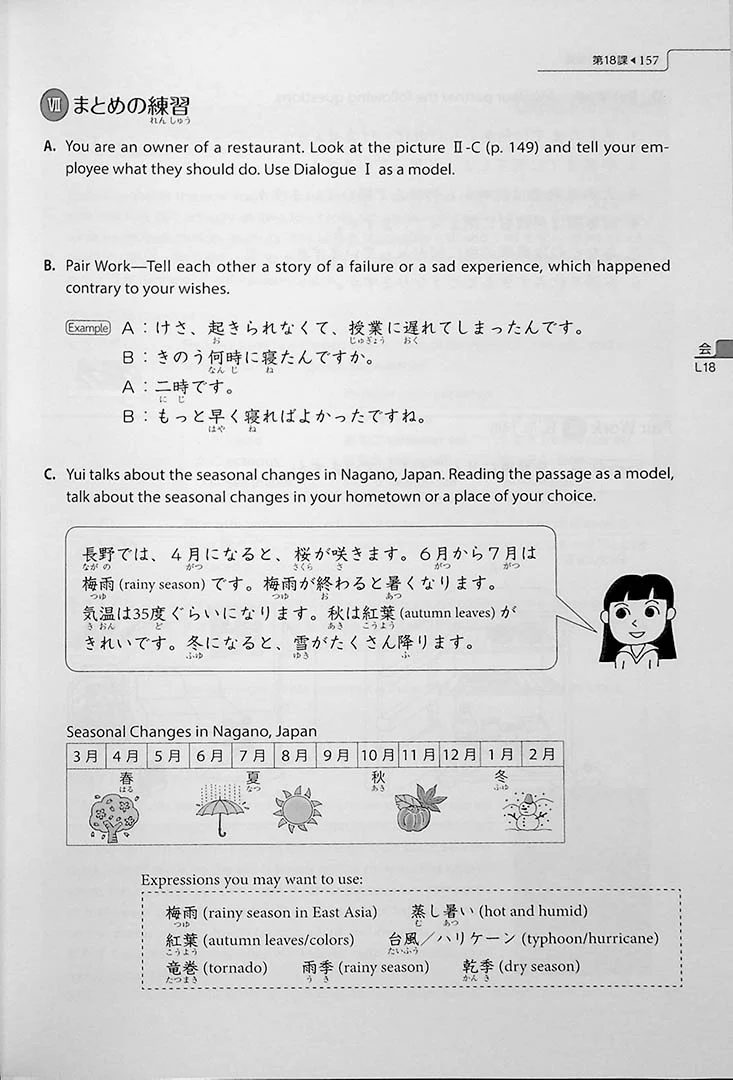 第18課◀157
Ⅶ まとめの練習
れんしゅう
A. You are an owner of a restaurant. Look at the picture Ⅱ-C (p. 149) and tell your em-
ployee what they should do. Use Dialogue Ⅰ as a model.
B. Pair Work—Tell each other a story of a failure or a sad experience, which happened
contrary to your wishes.
Example A：けさ、起きられなくて、授業に遅れてしまったんです。
お じゅぎょう おく
B：きのう何時に寝たんですか。
なんじ ね
A：二時です。
に じ
B：もっと早く寝ればよかったですね。
はや ね
会
L18
C. Yui talks about the seasonal changes in Nagano, Japan. Reading the passage as a model,
talk about the seasonal changes in your hometown or a place of your choice.
長野では、４月になると、桜が咲きます。６月から７月は
ながの がつ さくら さ がつ がつ
梅雨 (rainy season) です。梅雨が終わると暑くなります。
つゆ つゆ お あつ
気温は35度ぐらいになります。秋は紅葉 (autumn leaves) が
きおん ど あき こうよう
きれいです。冬になると、雪がたくさん降ります。
ふゆ ゆき ふ
Seasonal Changes in Nagano, Japan
3月 4月 5月 6月 7月 8月 9月 10月 11月 12月 1月 2月
春 夏 秋 冬
はる なつ あき ふゆ
Expressions you may want to use:
梅雨 (rainy season in East Asia) 蒸し暑い (hot and humid)
つゆ む あつ
紅葉 (autumn leaves/colors) 台風／ハリケーン (typhoon/hurricane)
こうよう たいふう
竜巻 (tornado) 雨季 (rainy season) 乾季 (dry season)
たつまき うき かんき